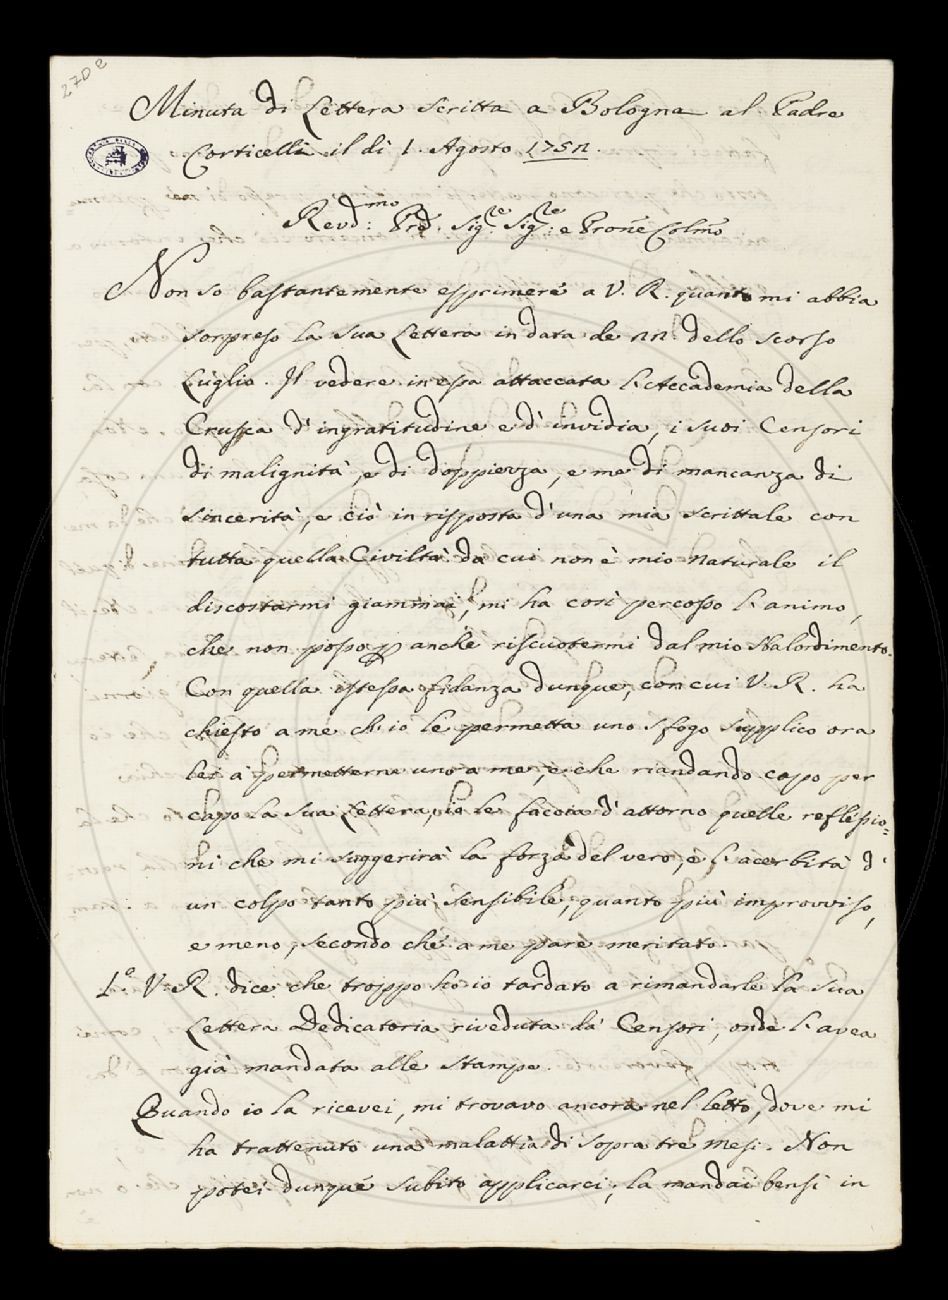 270 2
Minuta di Lettera scritta a Bologna al Padre
Corticelli il di 1. Agosto 1752.
Revd:mo Prd. Sigre Sigre: e Prone Colmo
Non so bastantemente esprimere a V. R. quanto mi abbia
sorpreso la sua Lettera in data de 22. dello scorso
Luglio. Il vedere in essa attaccata l'Accademia della
Crusca d'ingratitudine e d'invidia, i suoi Censori
di malignità, e di doppiezza, e me di mancanza di
sincerità, e ciò in risposta d'una mia scrittale con
tutta quella Civiltà da cui non è mio naturale il
discostarmi giammai, mi ha così percosso l'animo,
che non posso p anche riscuotermi dal mio sbalordimento.
Con quella istessa fidanza dunque, con cui V. R. ha
chiesto a me ch'io le permetta uno sfogo supplico ora
lei a permetterne uno a me, e che riandando capo per
capo la sua Lettera, io le faccia d'attorno quelle reflessio=
ni che mi suggerirà la forza del vero, e l'acerbità d'
un colpo tanto più sensibile, quanto più improvviso,
e meno, secondo che a me pare meritato.
1.o V. R. dice che troppo ho io tardato a rimandarle la sua
Lettera Dedicatoria riveduta da' Censori, onde l'avea
già mandata alle stampe.
Quando io la ricevei, mi trovavo ancora nel letto, dove mi
ha trattenuto una malattia di sopra tre mesi. Non
potei dunque subito applicarci, la mandai bensì in